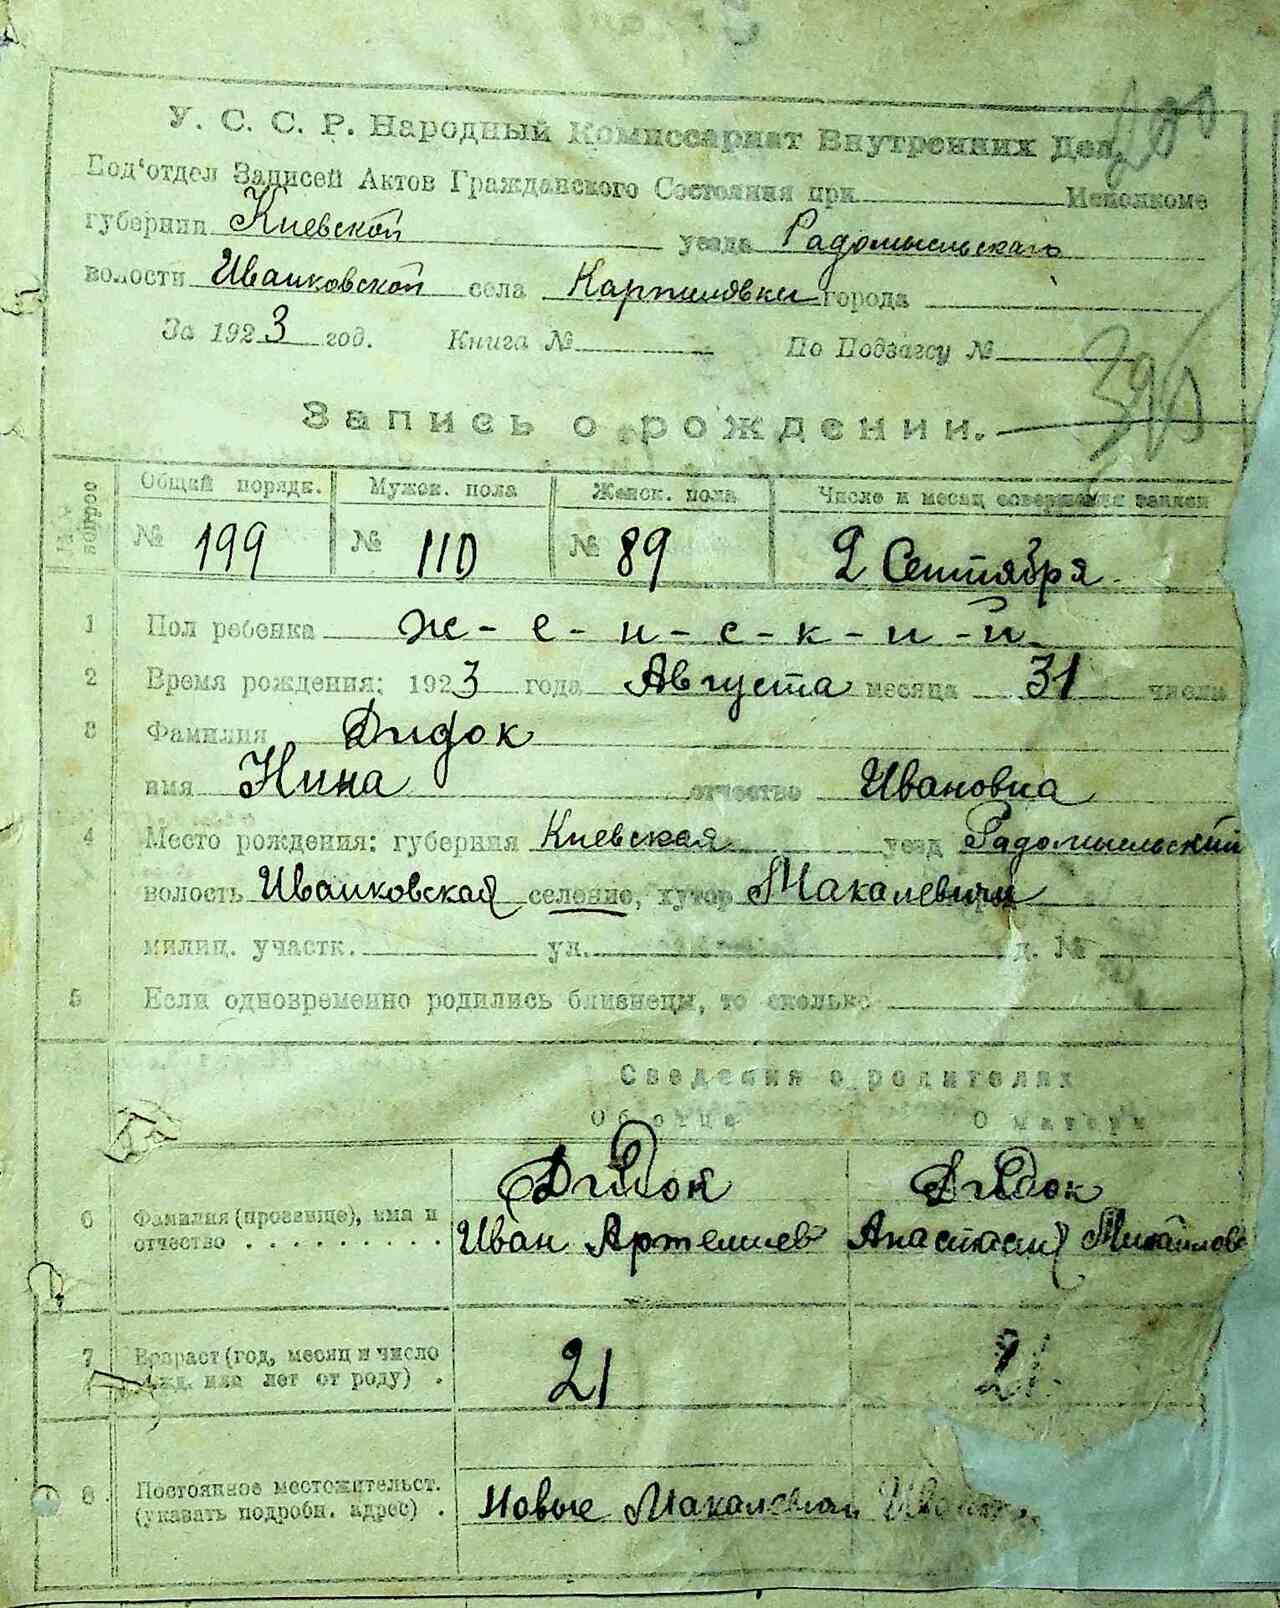 У. С. С. Р. Народный Комиссариат Внутренних Дел
Под'отдел Записей Актов Гражданского Состояния при Исполкоме
губернии Киевской уезда Радомысльскаго
волости Иванковской села Карпиловки города
За 1923 год. Книга № По Подзагсу №
Запись о рождении.
Общий порядк. Мужск. пола Женск. пола Число и месяц совершения записи
№ 199 № 110 № 89 2 Сентября
1 Пол ребенка Ж-е-н-с-к-и-й
2 Время рождения: 1923 года Августа месяца 31 числа
3 Фамилия Дидок
имя Нина отчество Ивановна
4 Место рождения: губерния Киевская уезд Радомысльский
волость Иванковская селение, хутор Макалевичи
милиц. участк. ул. д. №
5 Если одновременно родились близнецы, то сколько
Сведения о родителях
Об отце О матери
Дидок Дидок
6 Фамилия (прозвище), имя и отчество Иван Артемиев Анастасия Михайлова
7 Возраст (год, месяц и число рожд. или лет от роду) 21 21
8 Постоянное местожительст. (указать подробн. адрес) Новые Макалевичи